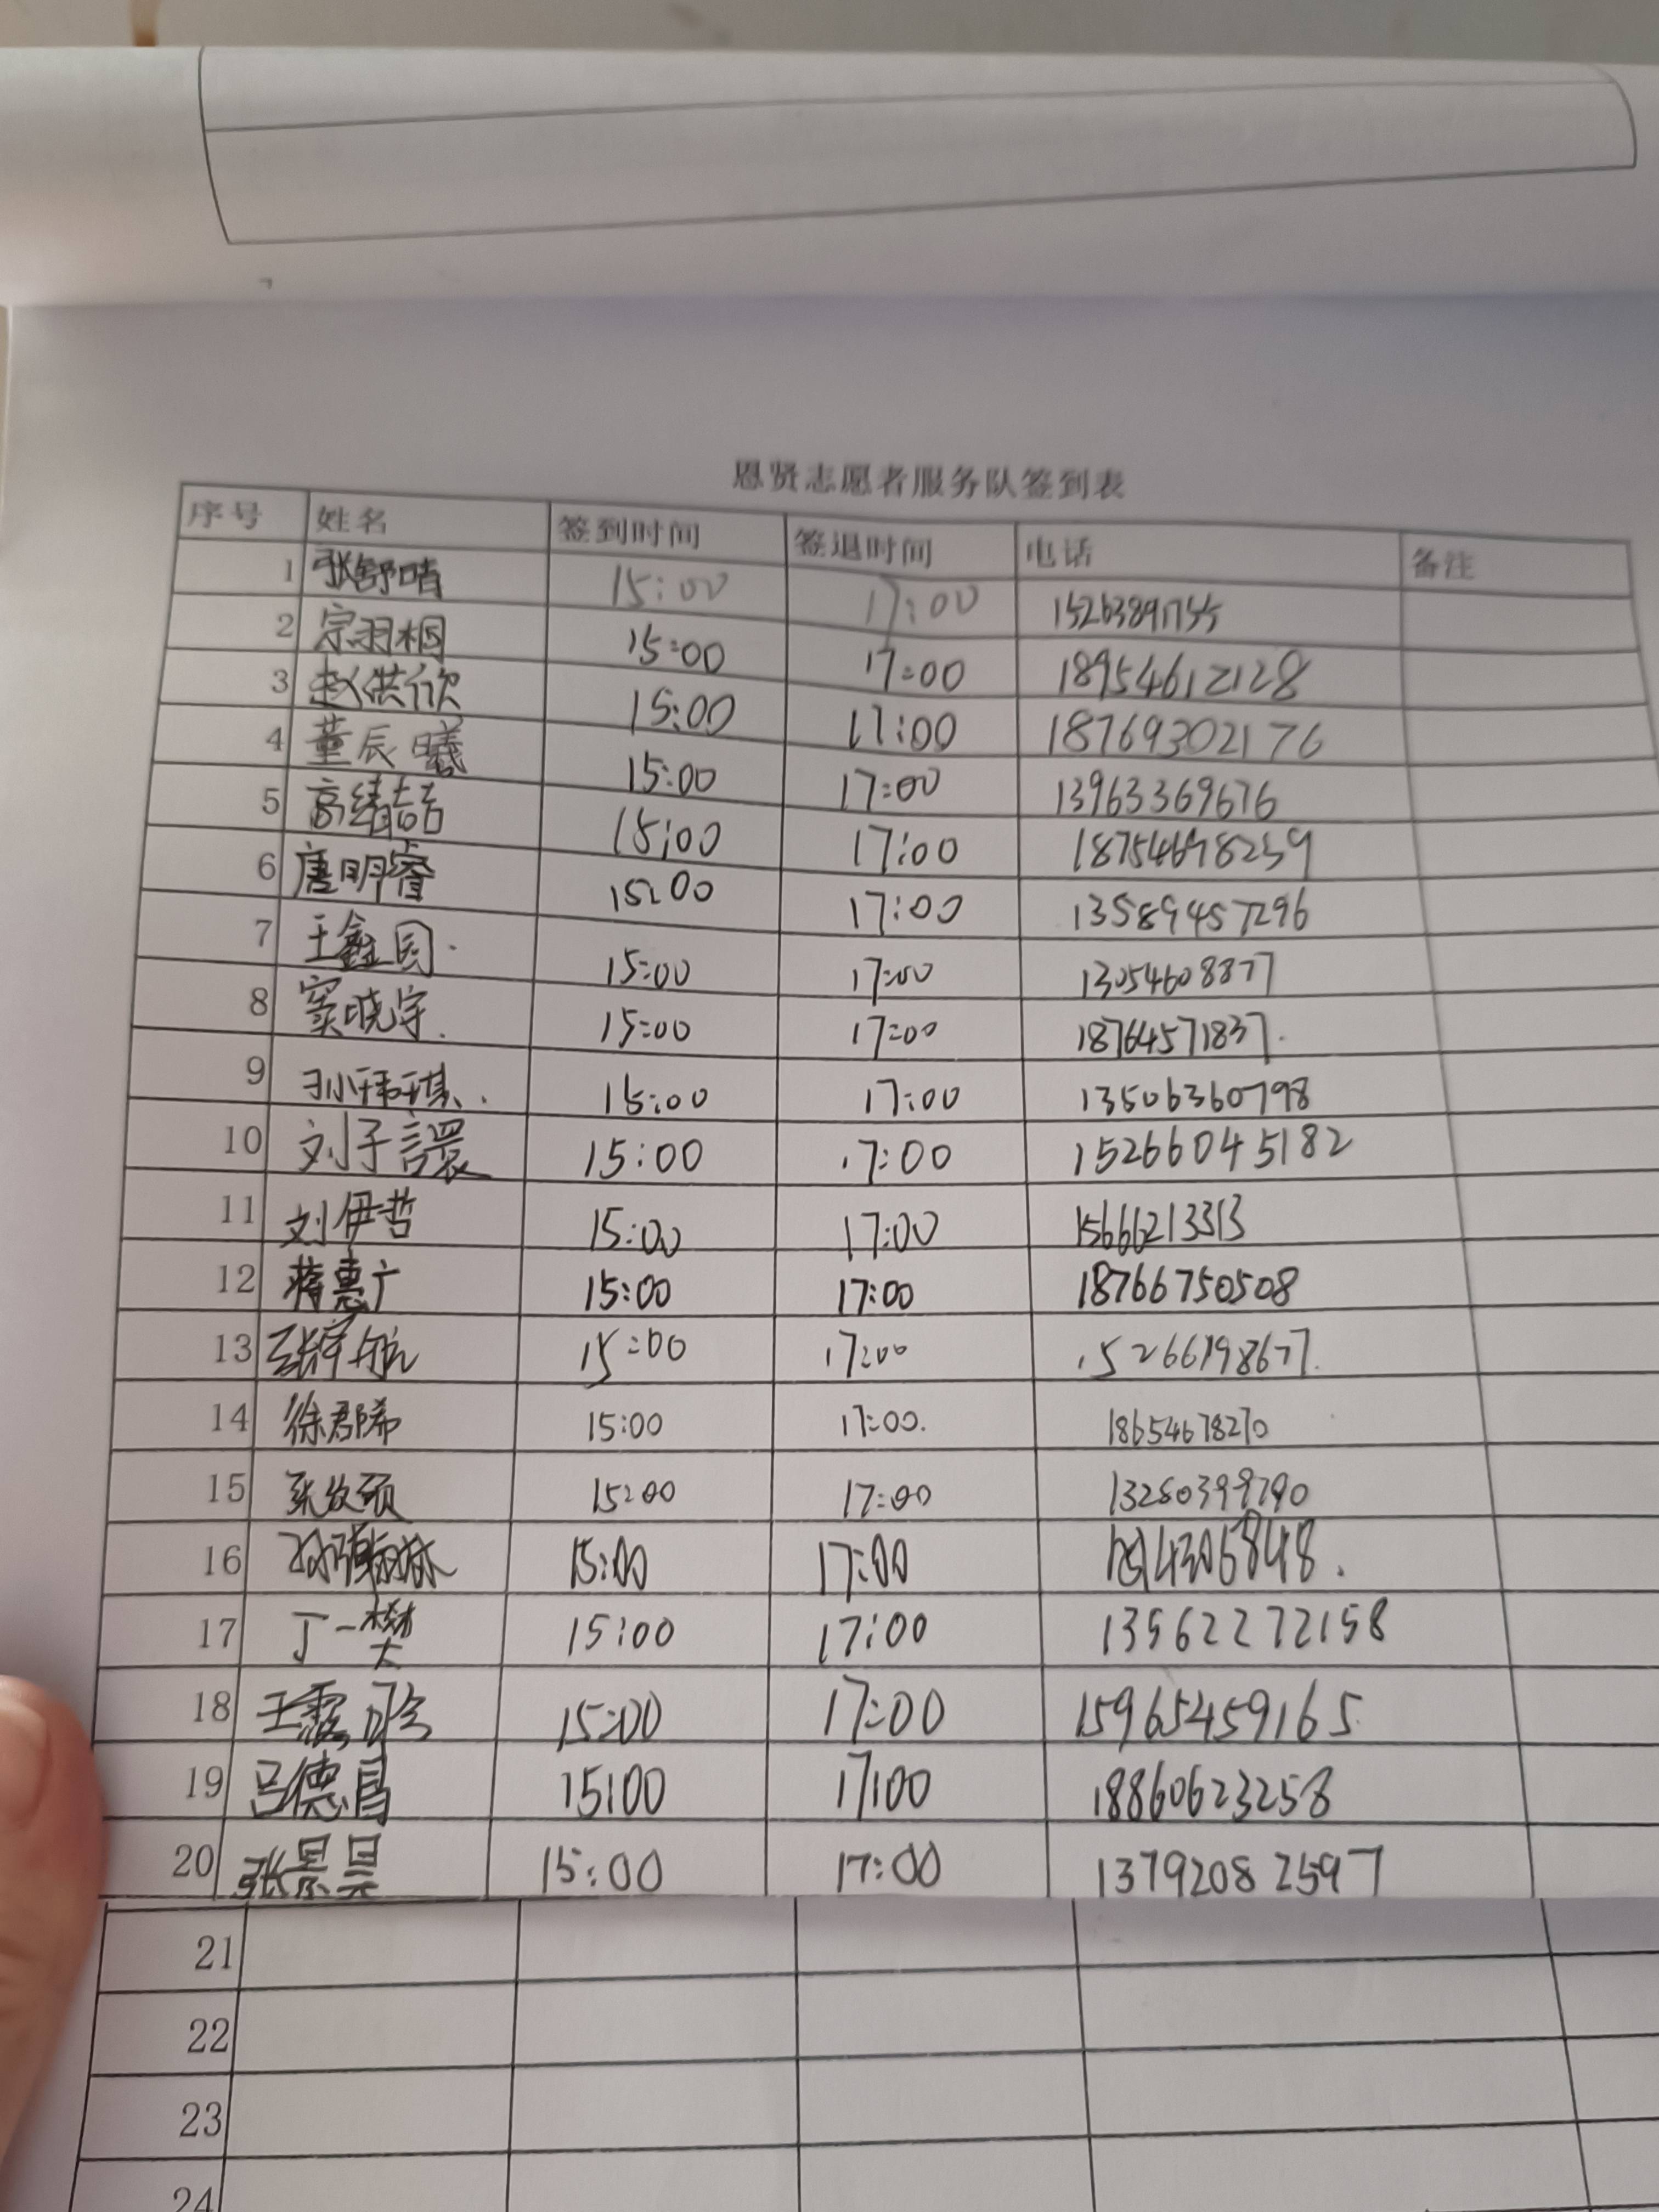 恩贤志愿者服务队签到表
序号 姓名 签到时间 签退时间 电话 备注
1 张舒晴 15:00 17:00 15263891755
2 宗羽桐 15:00 17:00 18954612128
3 赵洪欣 15:00 17:00 18769302176
4 董辰曦 15:00 17:00 13963369676
5 高绪喆 15:00 17:00 18754678259
6 唐明睿 15:00 17:00 13589457296
7 王鑫囩 15:00 17:00 13054608877
8 窦晓宇. 15:00 17:00 18764571837.
9 孙玮琪. 15:00 17:00 13506360798
10 刘子譞 15:00 17:00 15266045182
11 刘伊哲 15:00 17:00 15666213313
12 蒋惠广 15:00 17:00 18766750508
13 张宇航 15:00 17:00 15266198677.
14 徐郡希 15:00 17:00. 18654678270
15 15:00 17:00 13280399790
16 15:00 17:00
17 丁一樊 15:00 17:00 13562272158
18 王 15:00 17:00 15965459165
19 吕德昌 15:00 17:00 18860623258
20 张景昊 15:00 17:00 13792082597
21
22
23
24